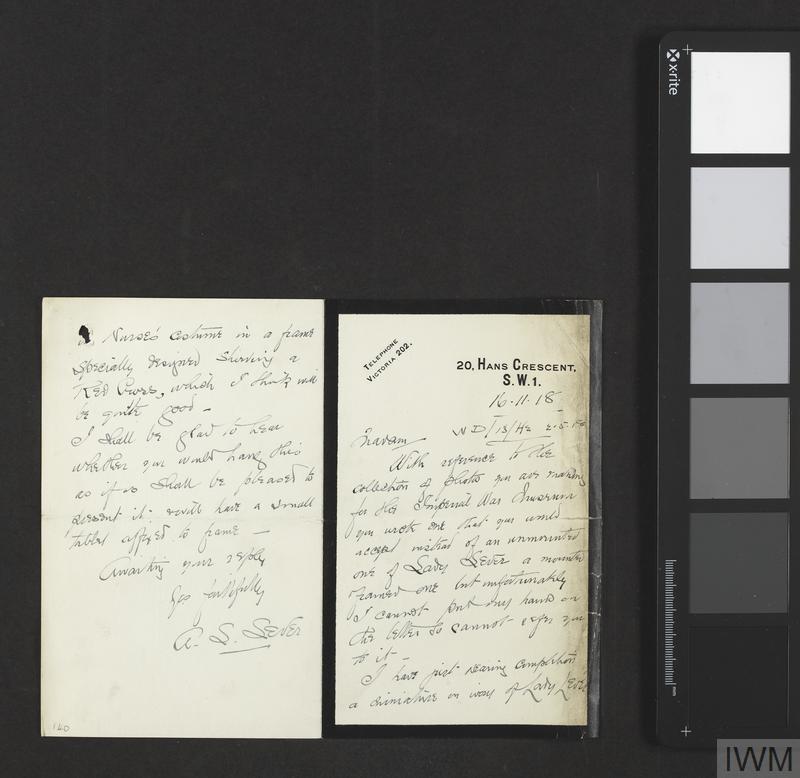 TELEPHONE
VICTORIA 202.
20, HANS CRESCENT,
S.W.1.
16.11.18
Madam
With reference to the
collection of photos you are making
for the Imperial War Museum
you wrote me that you would
accept instead of an unmounted
one of Lady Lever a mounted
framed one but unfortunately
I cannot put my hand on
the letter so cannot refer you
to it -
I have just nearing completion
a miniature on ivory of Lady Lever
in Nurse's costume in a frame
specially designed showing a
Red Cross, which I think will
be quite good -
I shall be glad to hear
whether you would have this
as if so shall be pleased to
present it & will have a small
tablet affixed to frame -
Awaiting your reply
Yrs faithfully
A. L. Lever
140
x-rite
mm
IWM